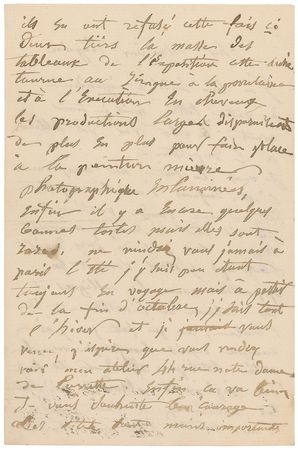 ils en ont refusé cette fois ci
deux tiers la masse des
tableaux de l'Exposition cette
tourne au à la
et à l'Execution En cheveux
les productions larges disparaissent
de plus En plus pour faire place
à la peinture mievre
photographique Enluminées,
Enfin il y a Encore quelques
toiles mais elles sont
rares. ne vous jamais à
paris l'été j'y suis peu étant
toujours En voyage mais a partir
de la fin d'octobre, j'y suis tout
l'hiver et si jamais vous
venez, j'espère que vous viendrez
voir mon atelier 44 rue notre dame
de Lorette Enfin ça va bien
Je vous souhaite bon courage
moins importants